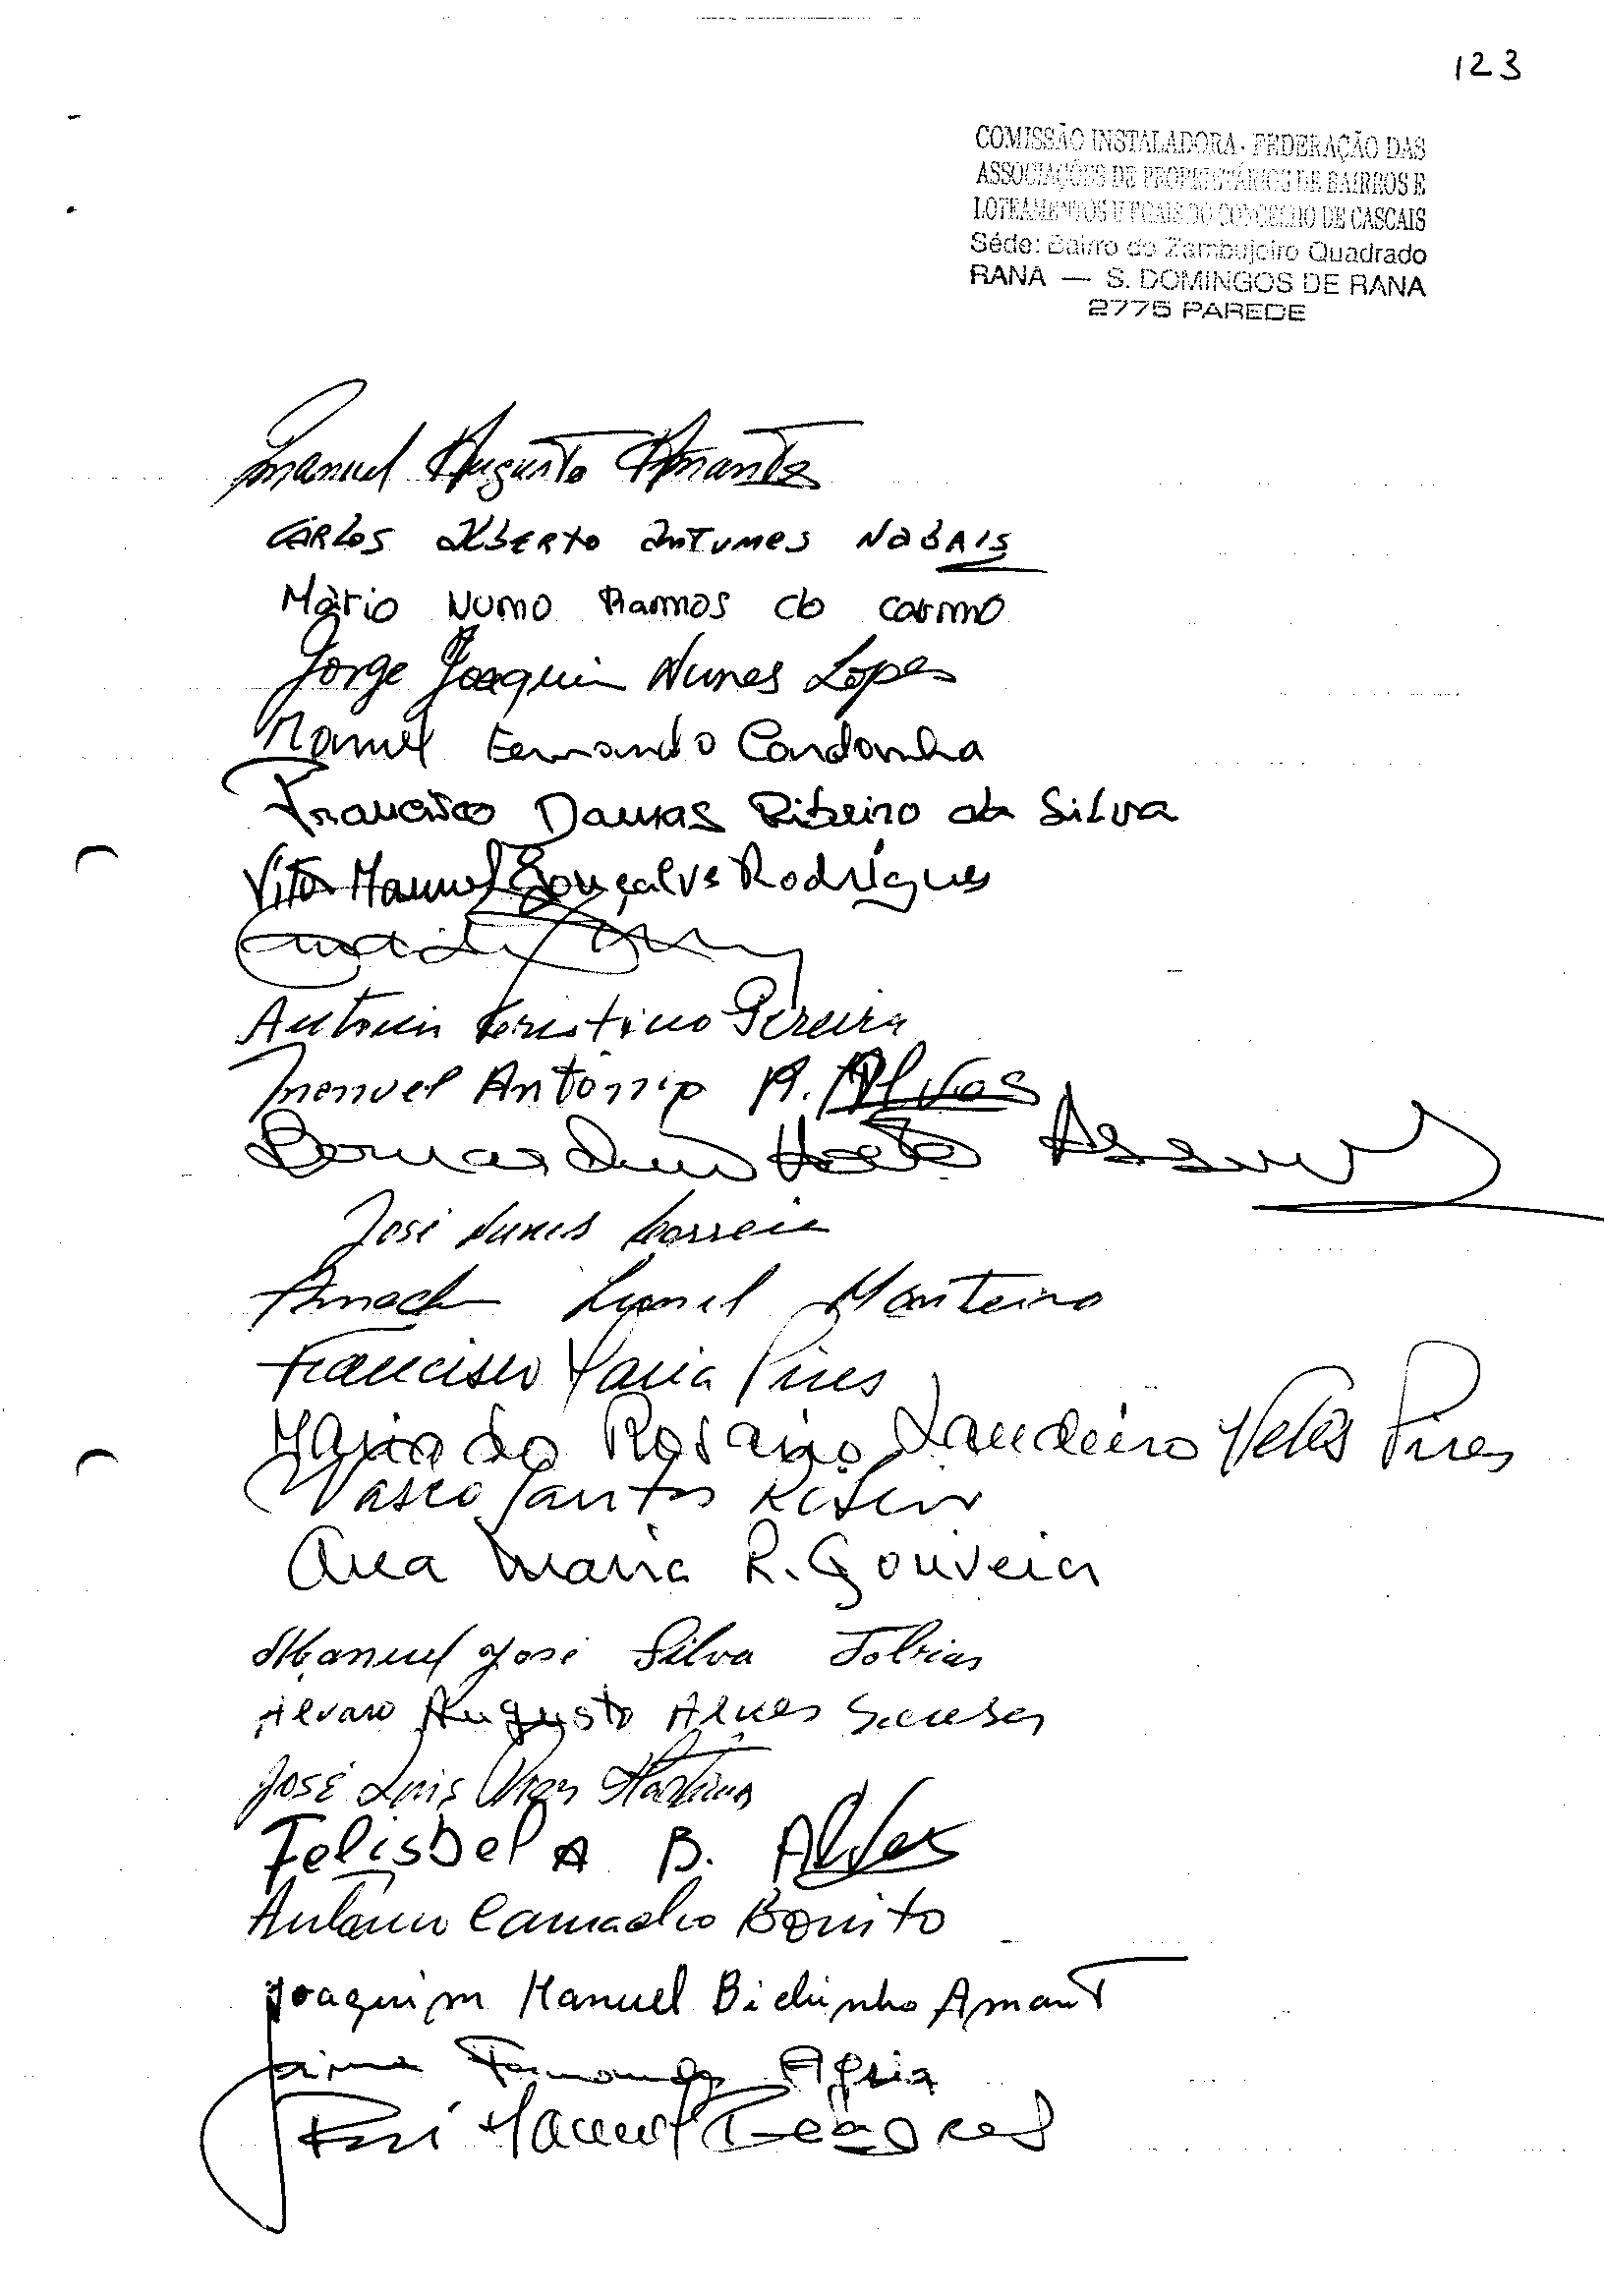 123
COMISSÃO INSTALADORA - FEDERAÇÃO DAS
ASSOCIAÇÕES DE PROPRIETÁRIOS DE BAIRROS E
LOTEAMENTOS ILEGAIS DO CONCELHO DE CASCAIS
Séde: Bairro do Zambujeiro Quadrado
RANA — S. DOMINGOS DE RANA
2775 PAREDE
Manuel Augusto Amante
Carlos Alberto Antunes Nabais
Mário Nuno Ramos do Carmo
Jorge Joaquim Nunes Lopes
Manuel Fernando
Francisco Damas Ribeiro da Silva
Vitor Manuel Gonçalves Rodrigues
António Cristino Pereira
Manuel António A. Alves
Bernardino
José Nunes Correia
Lionel Monteiro
Francisco Maria Pires
Maria do Rosario Landeiro Pires
Vasco Santos
Ana Maria R. Gouveia
Manuel José Silva Tobias
Alvaro Augusto Alves Sousa
José Luis Martins
Felisbela B. Alves
António Camacho Bonito
Joaquim Manuel Bichinho Amant
Jaime Fernandes
Manuel